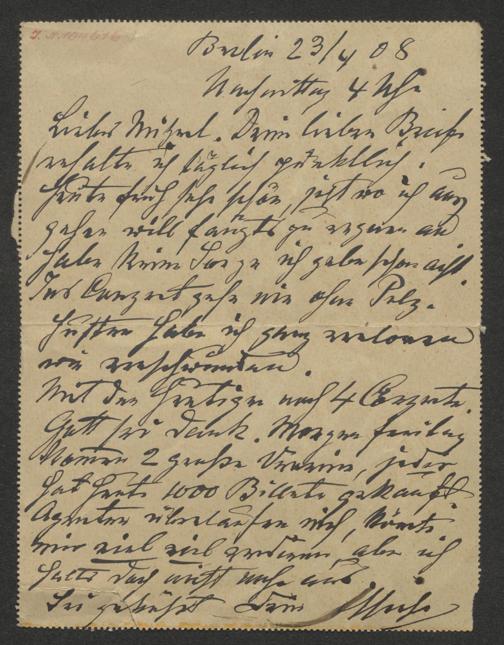 Berlin 23/4 08
Nachmittag 4 Uhr
Lieber Deine lieben Briefe
erhalte ich täglich pünktlich.
Heute früh sehr schön, jetzt wo ich aus
gehen will fängts zu regnen an
habe keine Sorge ich gebe schon acht.
Ins Conzert gehe nie ohne Pelz.
Husten habe ich ganz verloren
wie verschwunden.
Mit den heutigen noch 4 Conzerte.
Gott sei Dank. Morgen freitag
kommen 2 große Vereine, jeder
hat heute 1000 Billete gekauft
Agenten überlaufen mich, könnte
nur viel viel verdienen, aber ich
halte doch nicht mehr aus
Sei geküßt Dein